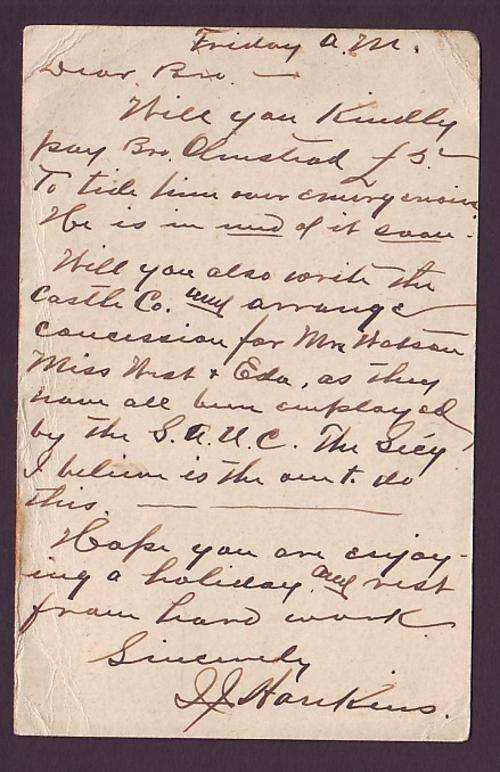 Friday A.M.
Dear Bro. —
Will you Kindly
pay Bro. Olmstead £5—
To tide him over emergencies
He is in need of it soon.
Will you also write the
Castle Co. and arrange
concession for Mrs Watson
Miss West & Eda, as they
have all been employed
by the S.A.U.C. The Secy
I believe is the one t. do
this. — —
Hope you are enjoy-
ing a holiday and rest
from hard work
Sincerely
Hankins.